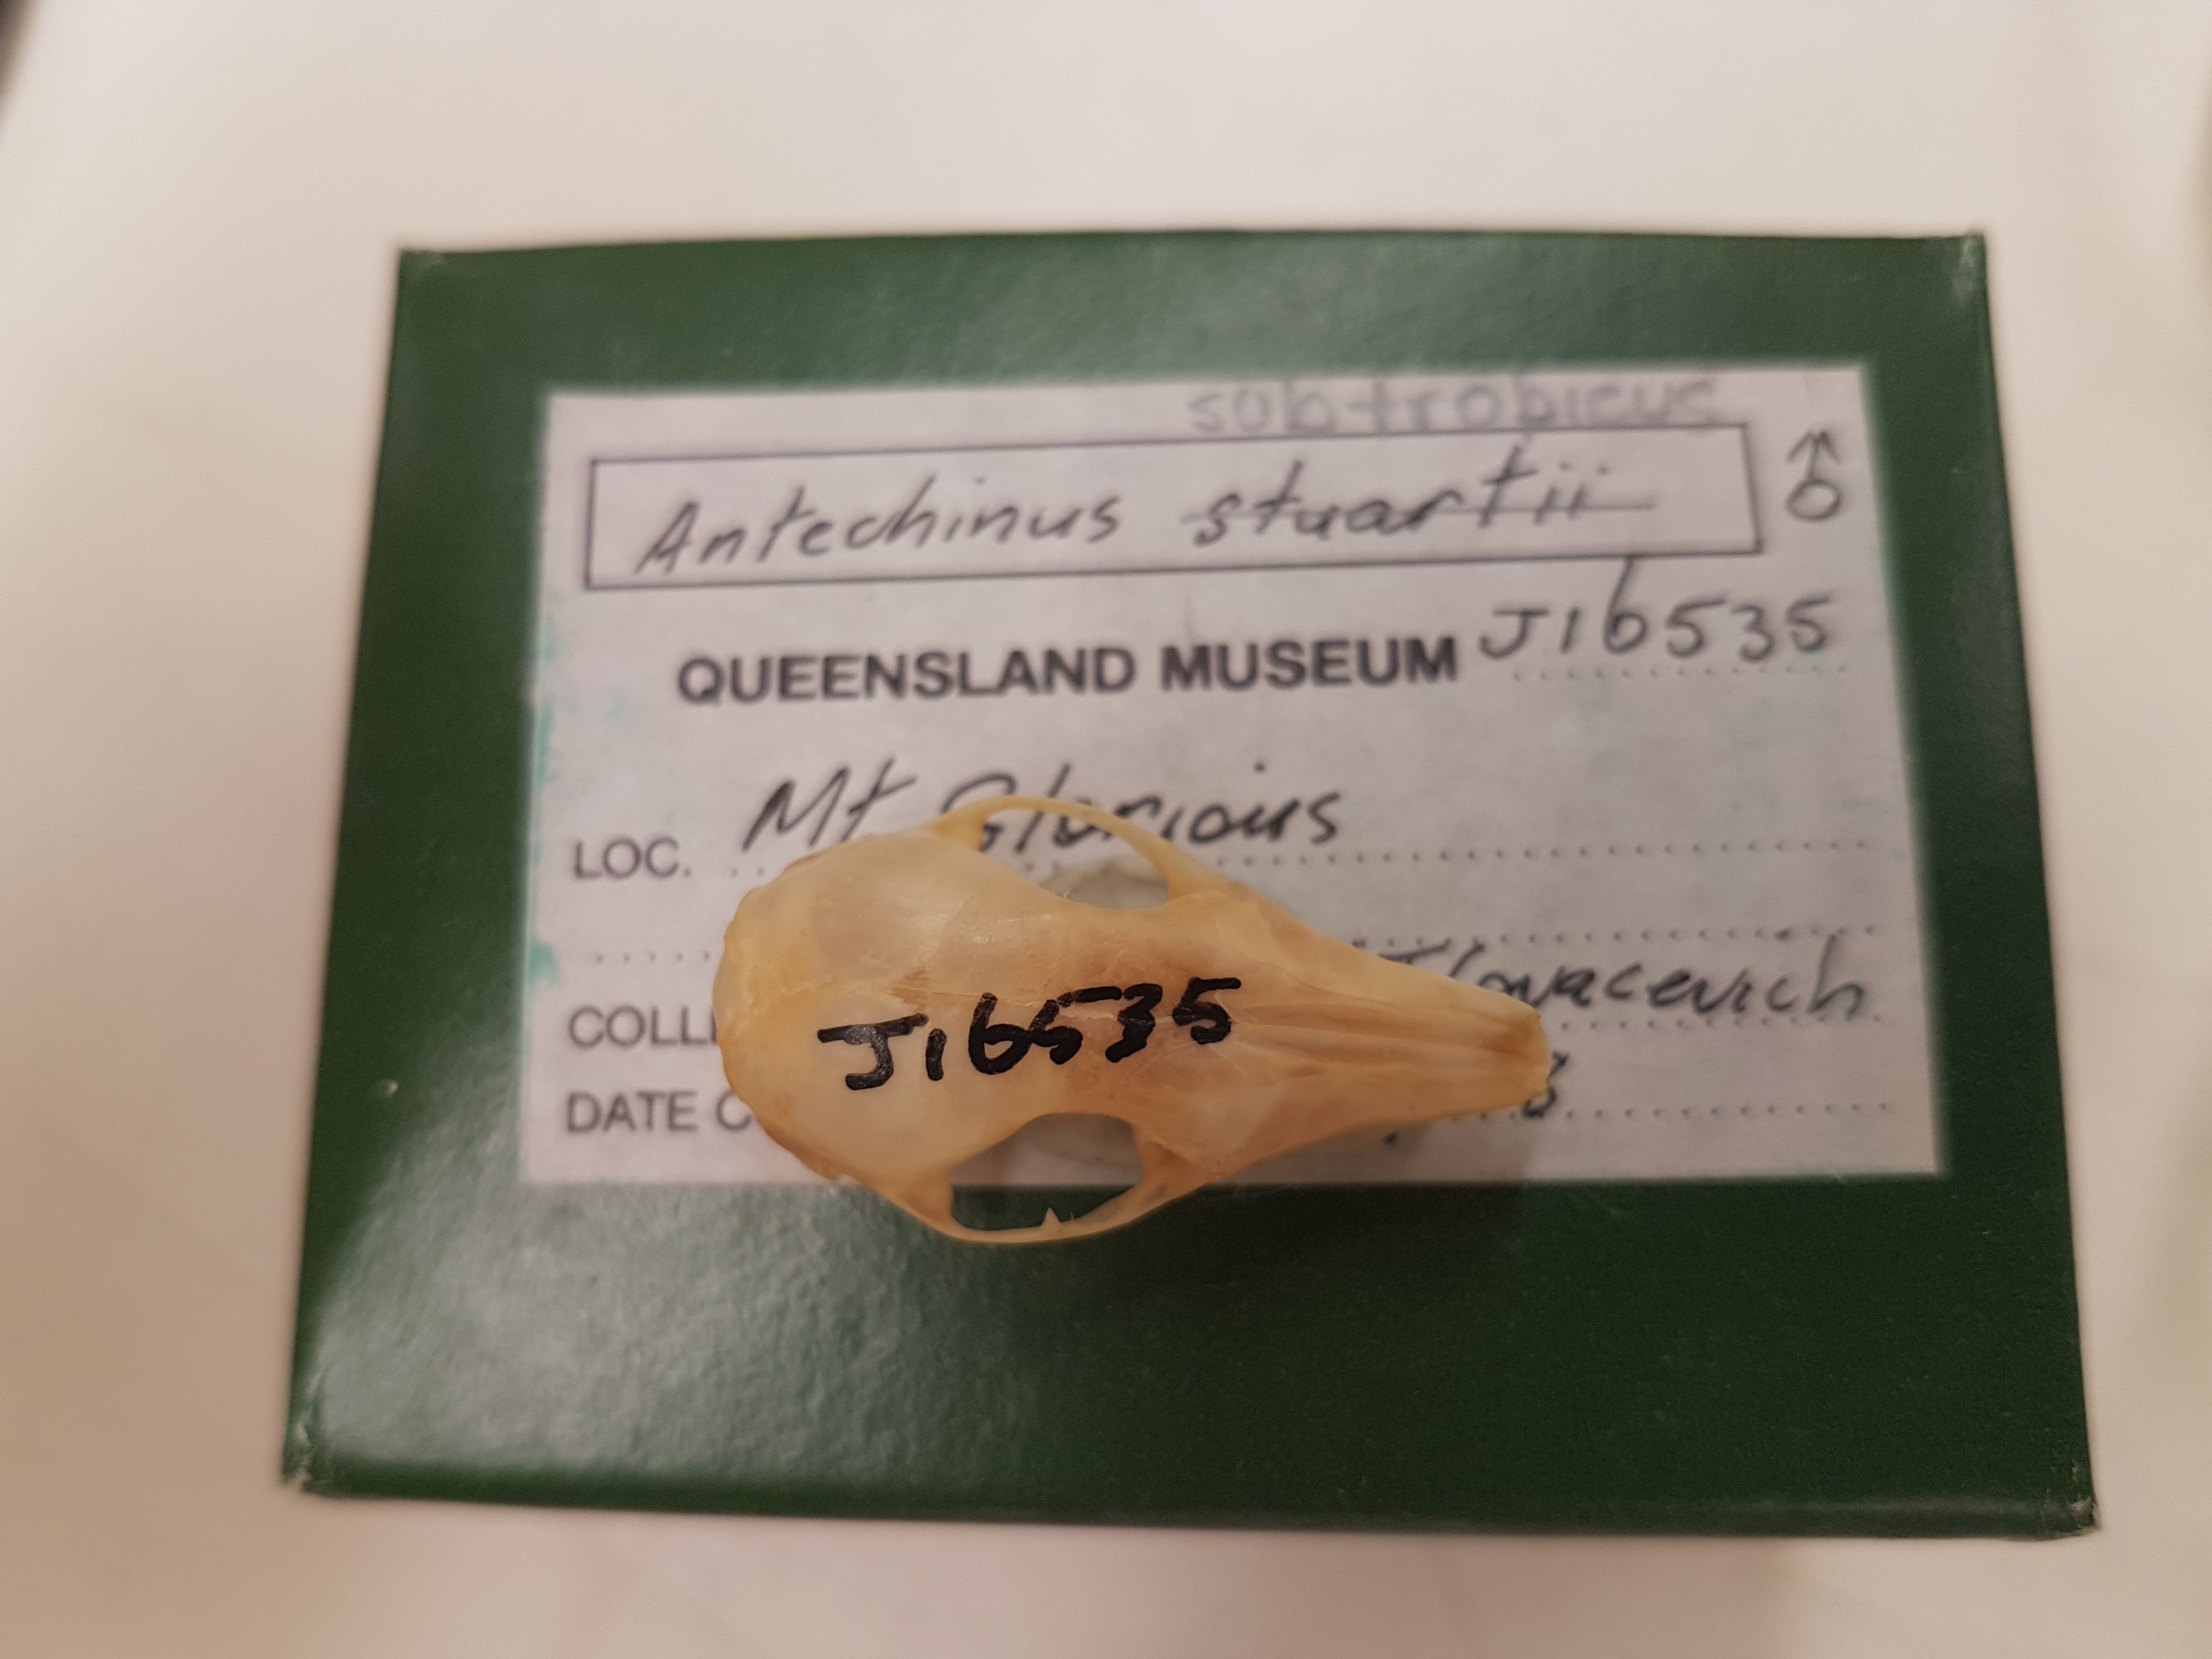 subtropicus
Antechinus stuartii ♂
QUEENSLAND MUSEUM J16535
LOC. Mt Glorious
COLL
DATE C
J16535